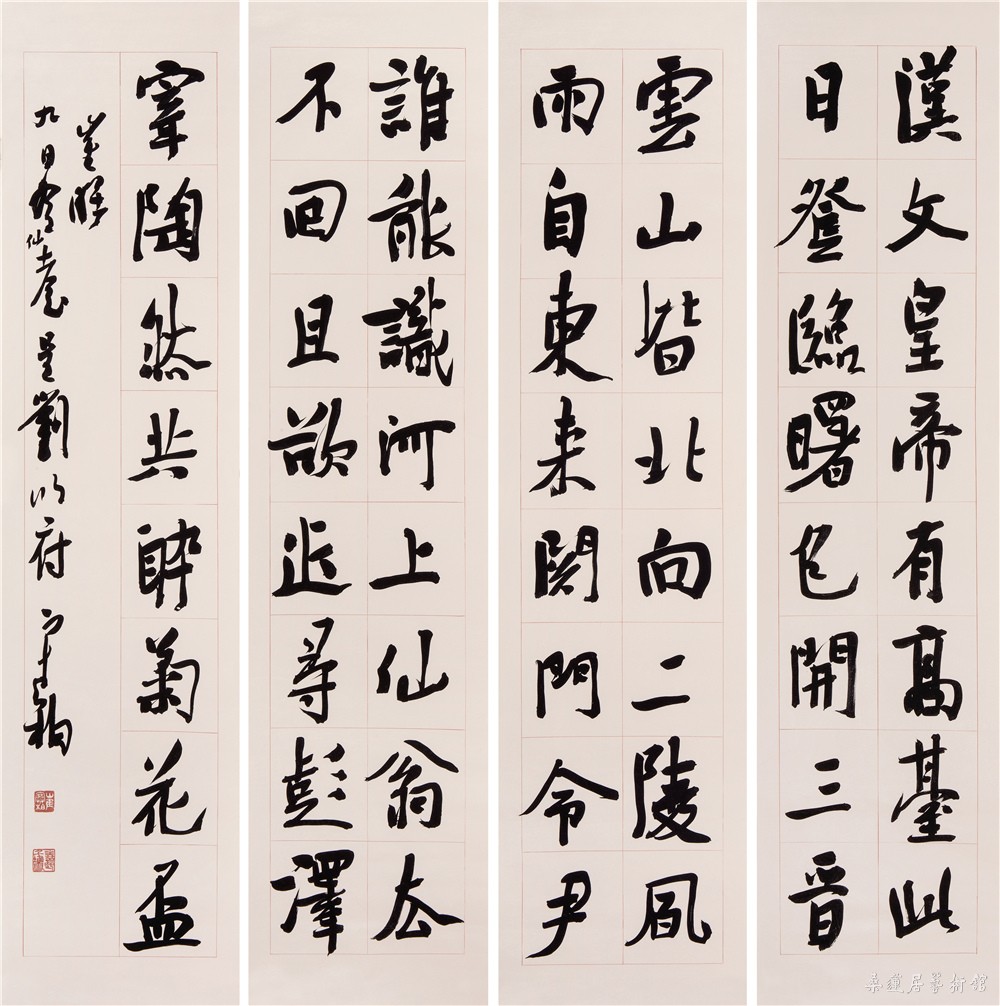 漢文皇帝有高臺此
日登臨曙色開三晉
雲山皆北向二陵風
雨自東来關門令尹
誰能識河上仙翁去
不回且欲近尋彭澤
宰陶然共醉菊花盃
崔曙
九日登仙臺呈劉明府 寒柏
桑蓮居藝術館